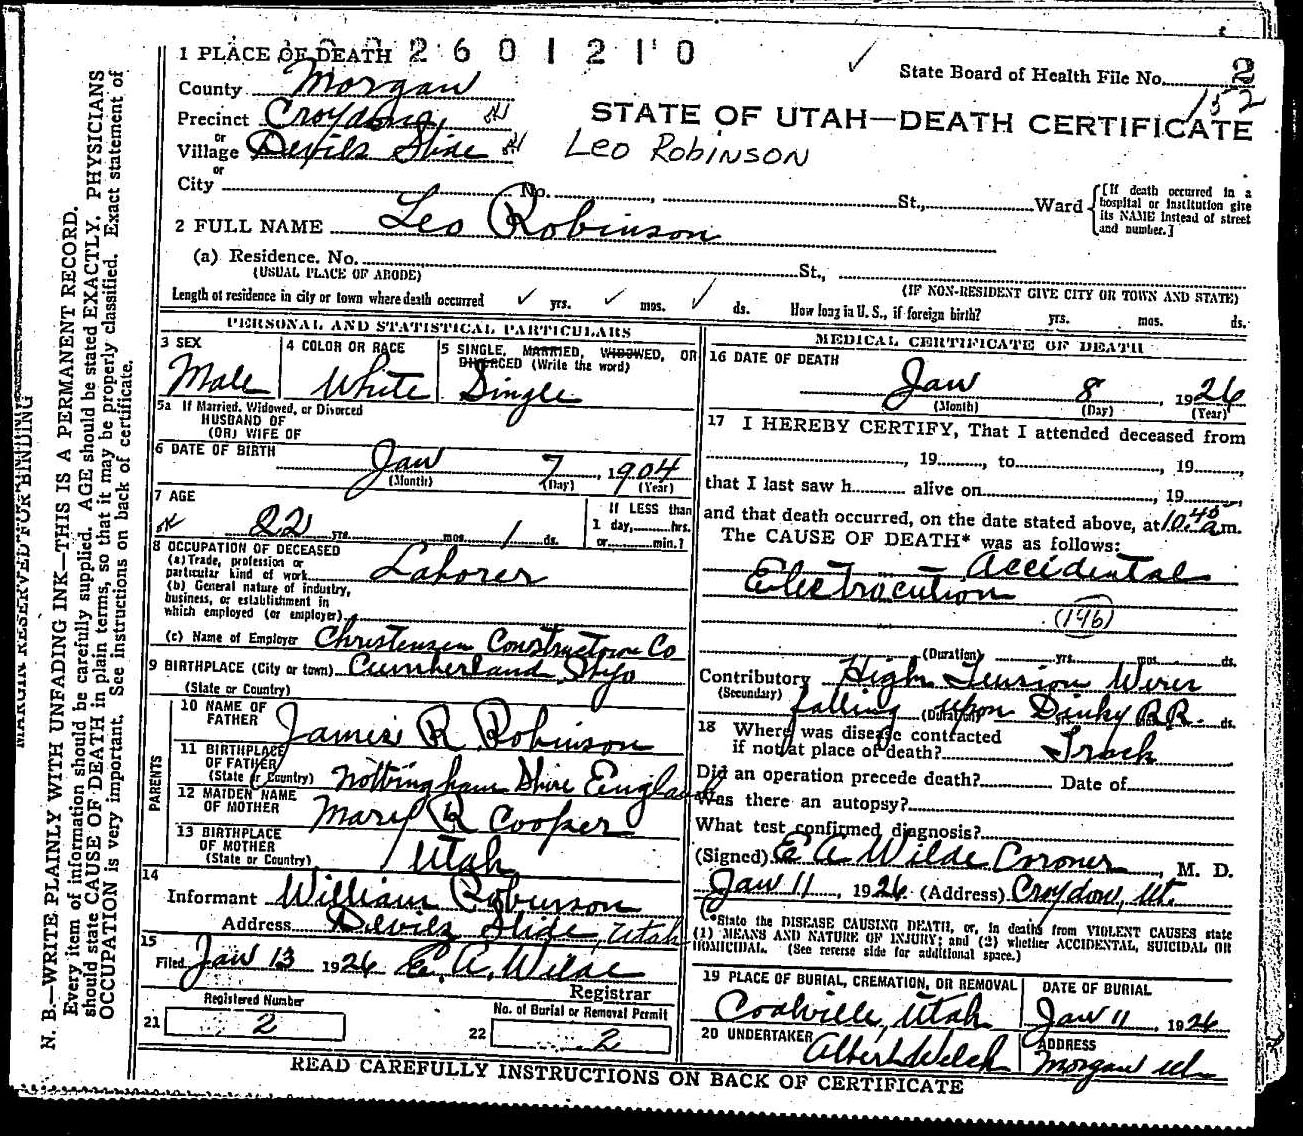 1 PLACE OF DEATH 2 6 0 1 2 1 0
State Board of Health File No. 2
152
County Morgan
Precinct Croydon
or
Village Devils Slide
or
City No. St., Ward
STATE OF UTAH—DEATH CERTIFICATE
Leo Robinson
[If death occurred in a hospital or institution give its NAME instead of street and number.]
2 FULL NAME Leo Robinson
(a) Residence. No. St.,
(USUAL PLACE OF ABODE) (IF NON-RESIDENT GIVE CITY OR TOWN AND STATE)
Length of residence in city or town where death occurred ✓ yrs. ✓ mos. ✓ ds. How long in U. S., if foreign birth? yrs. mos. ds.
PERSONAL AND STATISTICAL PARTICULARS
3 SEX
Male
4 COLOR OR RACE
White
5 SINGLE, MARRIED, WIDOWED, OR
DIVORCED (Write the word)
Single
5a If Married, Widowed, or Divorced
HUSBAND OF
(OR) WIFE OF
6 DATE OF BIRTH
Jan 7, 1904
(Month) (Day) (Year)
7 AGE
22 yrs. mos. 1 ds.
If LESS than
1 day, hrs.
or min.?
8 OCCUPATION OF DECEASED
(a) Trade, profession or
particular kind of work Laborer
(b) General nature of industry,
business, or establishment in
which employed (or employer)
(c) Name of Employer Christensen Construction Co
9 BIRTHPLACE (City or town) Cumberland Wyo
(State or Country)
PARENTS
10 NAME OF
FATHER James R Robinson
11 BIRTHPLACE
OF FATHER
(State or Country) Nottingham Shire England
12 MAIDEN NAME
OF MOTHER Mary R Cooper
13 BIRTHPLACE
OF MOTHER
(State or Country) Utah
14
Informant William Robinson
Address Devils Slide, Utah
15
Filed Jan 13 1926 E. A. Wilde
Registrar
21 Registered Number
2
22 No. of Burial or Removal Permit
2
MEDICAL CERTIFICATE OF DEATH
16 DATE OF DEATH
Jan 8, 1926
(Month) (Day) (Year)
17 I HEREBY CERTIFY, That I attended deceased from
, 19, to, 19,
that I last saw h alive on, 19,
and that death occurred, on the date stated above, at 10.45 a m.
The CAUSE OF DEATH* was as follows:
Accidental
Electrocution
(196)
(Duration) yrs. mos. ds.
Contributory High Tension Wires
(Secondary) falling (Duration) upon Dinky R.R. ds.
18 Where was disease contracted
if not at place of death? Track
Did an operation precede death? Date of
Was there an autopsy?
What test confirmed diagnosis?
(Signed) E A Wilde Coroner, M. D.
Jan 11, 1926 (Address) Croydon, Ut.
(*State the DISEASE CAUSING DEATH, or, in deaths from VIOLENT CAUSES state
(1) MEANS AND NATURE OF INJURY; and (2) whether ACCIDENTAL, SUICIDAL OR
HOMICIDAL. (See reverse side for additional space.)
19 PLACE OF BURIAL, CREMATION, OR REMOVAL
Coalville, Utah
DATE OF BURIAL
Jan 11, 1926
20 UNDERTAKER
Albert Welch
ADDRESS
Morgan Ut
READ CAREFULLY INSTRUCTIONS ON BACK OF CERTIFICATE
MARGIN RESERVED FOR BINDING
N. B.—WRITE PLAINLY WITH UNFADING INK—THIS IS A PERMANENT RECORD.
Every item of information should be carefully supplied. AGE should be stated EXACTLY. PHYSICIANS
should state CAUSE OF DEATH in plain terms, so that it may be properly classified. Exact statement of
OCCUPATION is very important. See instructions on back of certificate.